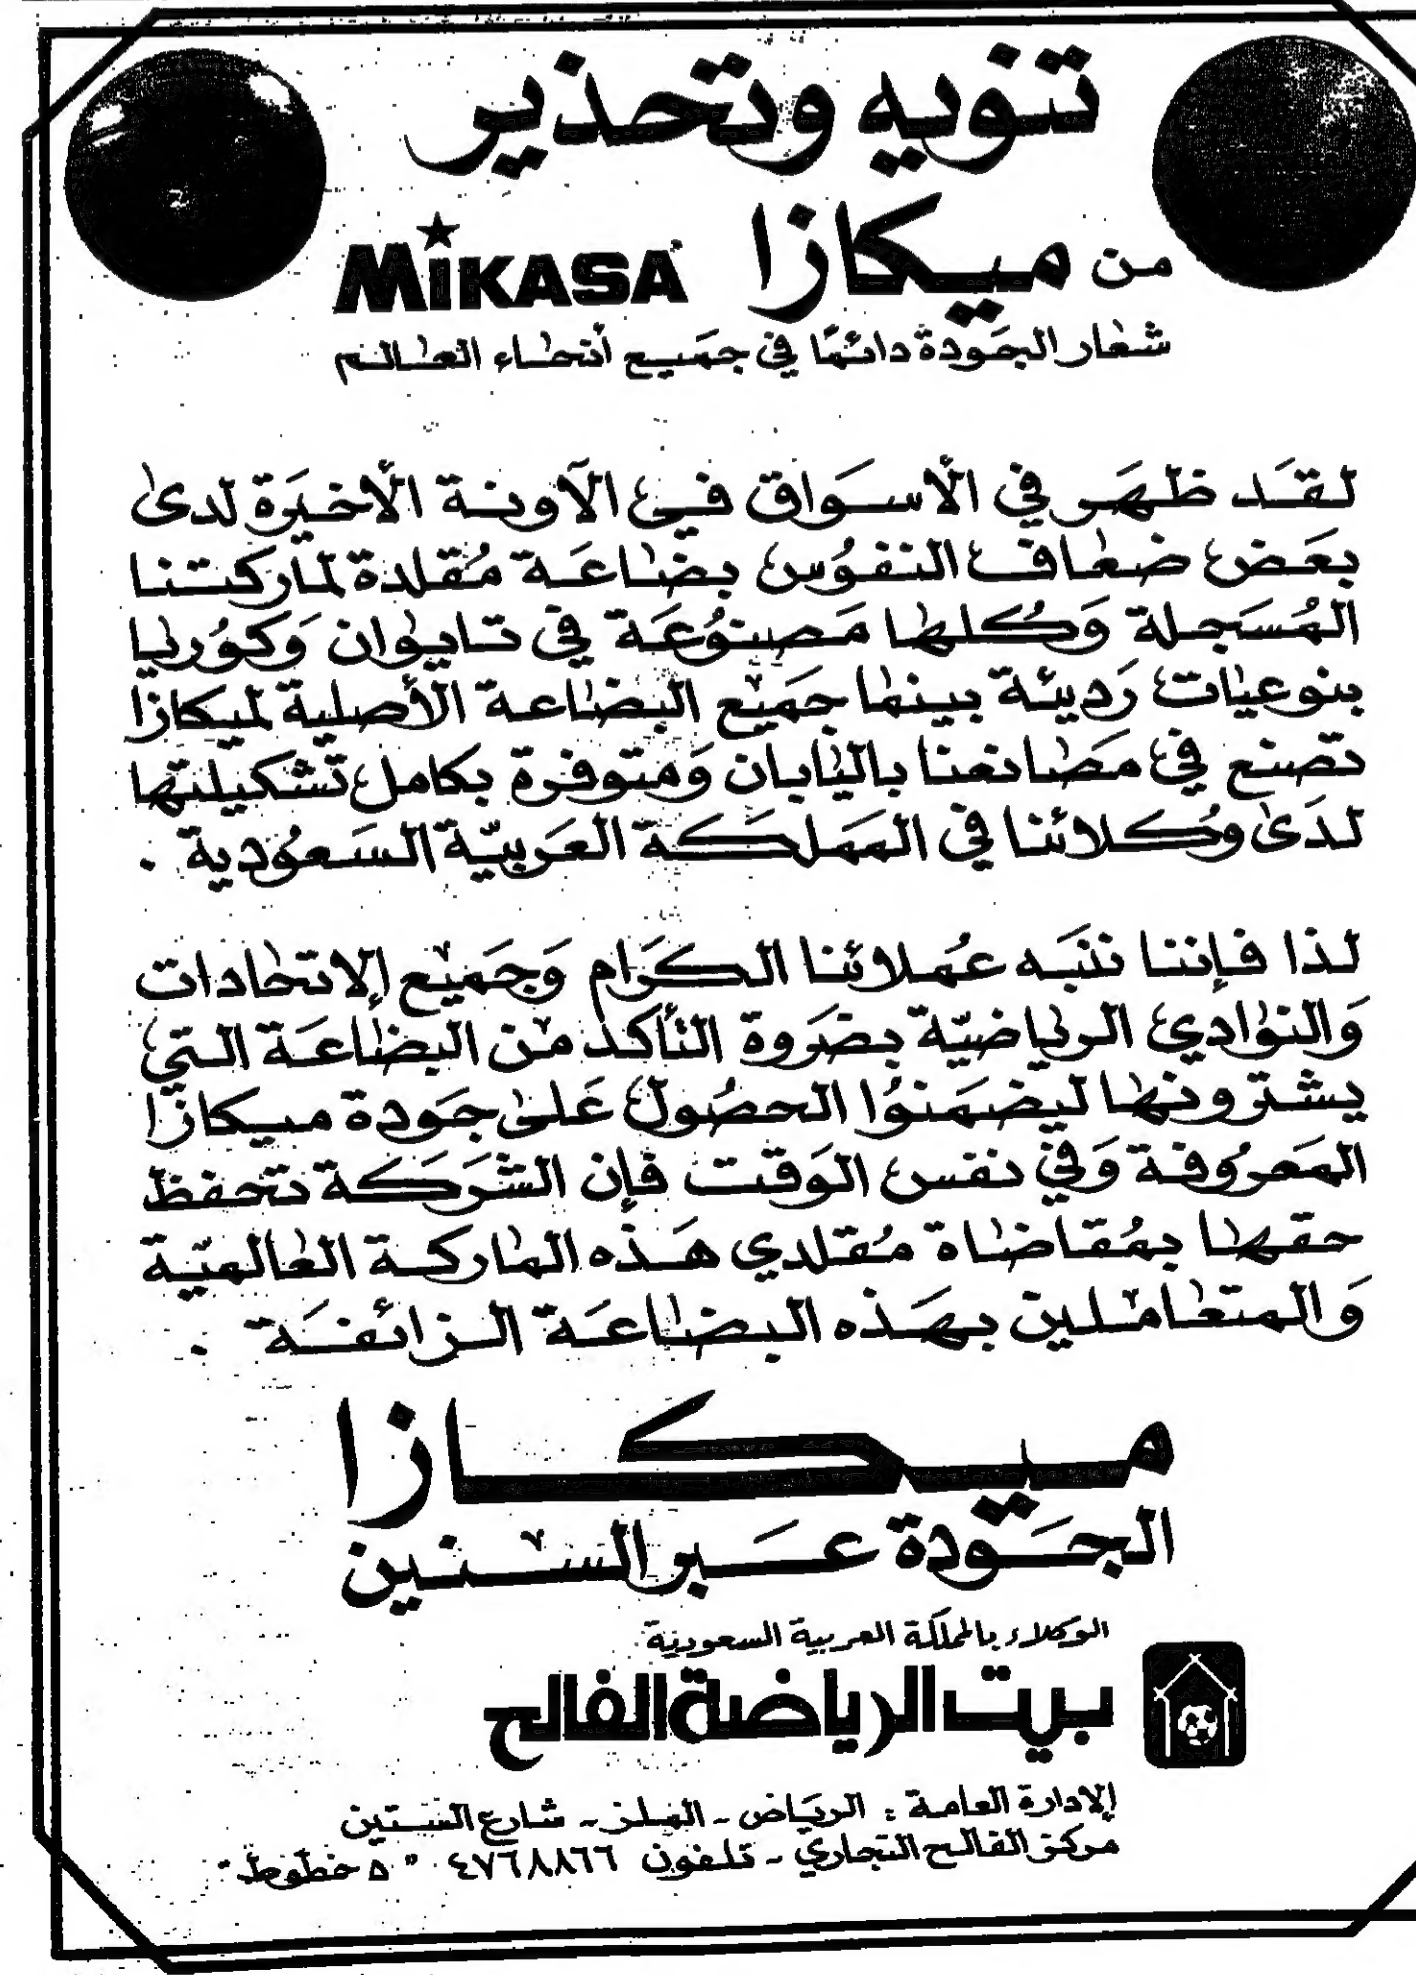 تنويه وتحذير
من ميكازا MIKASA
شعار الجودة دائمًا في جميع أنحاء العالم
لقَد ظهَر في الأسوَاق في الآونة الأخيَرة لدى
بعَض ضعاف النفوُس بضاعَة مُقلدة لماركتنا
المُسَجلة وَكُلها مَصنوُعَة في تايوان وَكوُريا
بنوعيات رَديئة بينما جمَيع البضاعة الأصلية لميكازا
تصنع في مصَانعنا باليابان وَمتوفرة بكامل تشكيلتها
لدَى وُكلائنا في المَملكَة العَربيّة السَعوُدية .
لذا فإننا ننبَه عُملائنا الكرَام وَجمَيع إلاتحادات
وَالنوادي الرياضيّة بضَروة التأكد من البضاعَة التي
يشترونها ليضمَنوُا الحصُول عَلى جَودة ميكازا
المعَروُفة وَفي نفس الوَقت فإن الشَركَة تحفظ
حقها بمُقاضاة مُقلدي هَذه الماركة العالميّة
وَالمتعاملين بهَذه البضاعَة الزائفَة .
ميكازا
الجَودة عَبر السنين
الوكلاء بالمملكة العربية السعودية
بيت الرياضة الفالح
إلادارة العامة : الريَاض - الملز - شارع الستين
مركز الفالح التجاري - تلفون ٤٧٦٨٨٦٦ " ٥ خطوط "